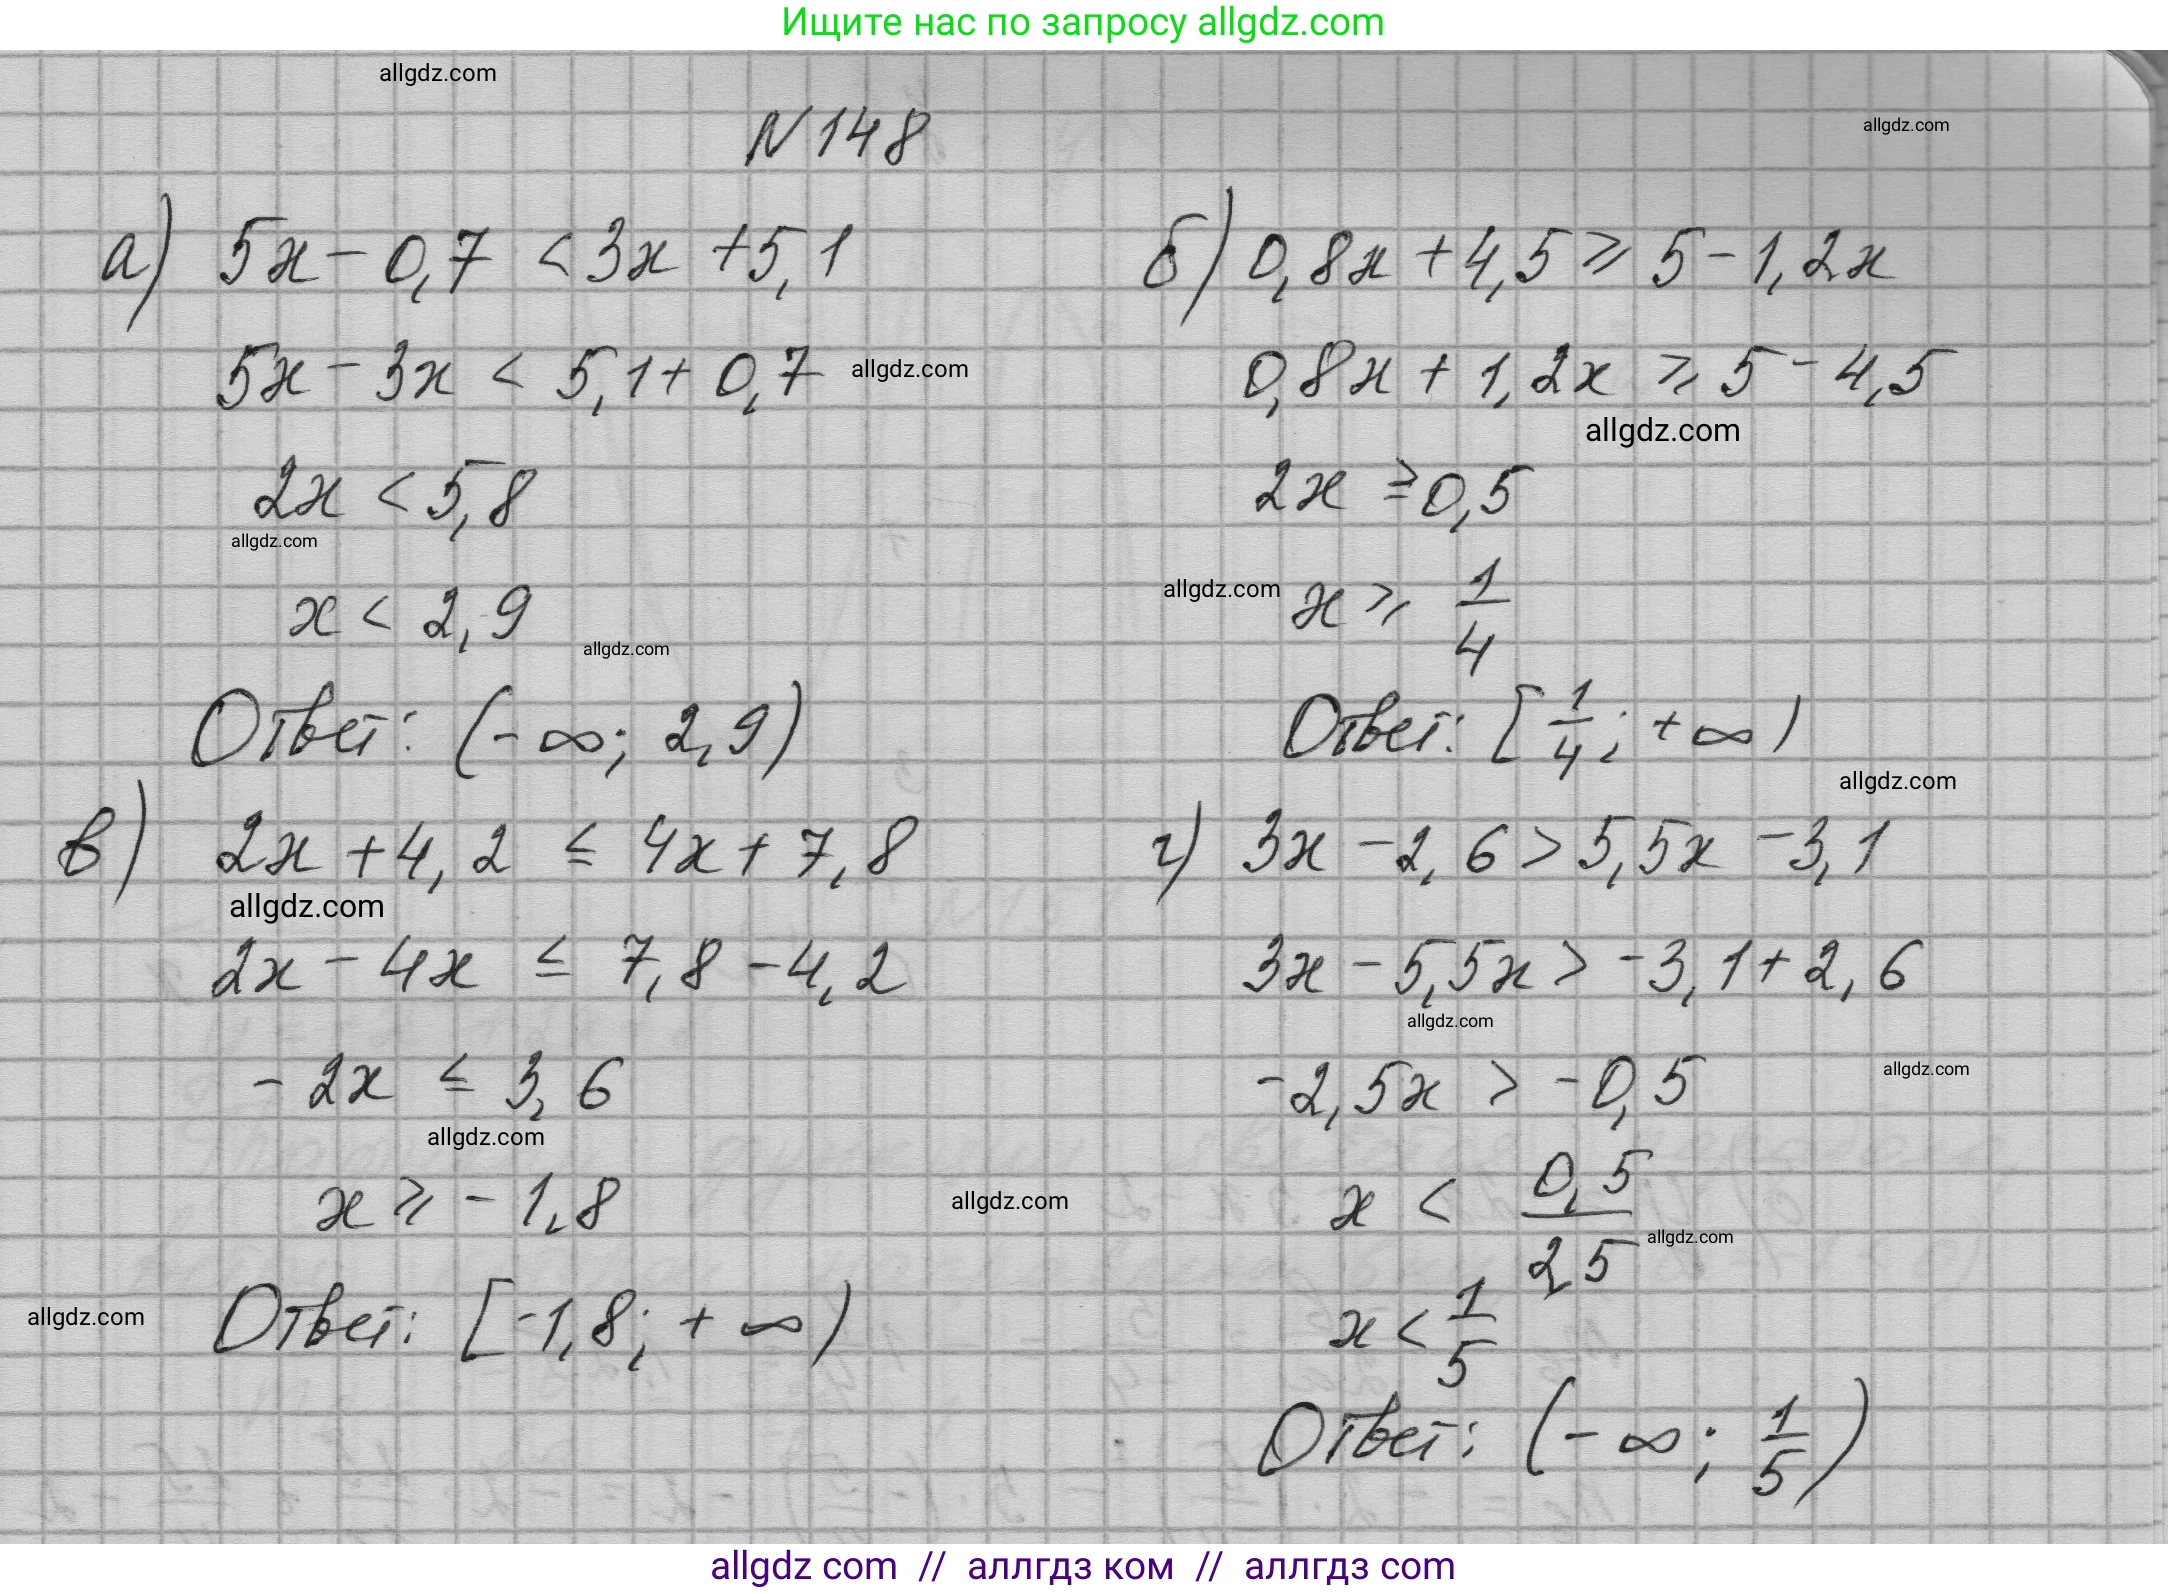 Ищите нас по запросу allgdz.com
allgdz.com
N148
allgdz.com
а) 5x - 0,7 < 3x + 5,1
5x - 3x < 5,1 + 0,7
allgdz.com
2x < 5,8
allgdz.com
x < 2,9
allgdz.com
Ответ: (-∞; 2,9)
б) 0,8x + 4,5 ⩾ 5 - 1,2x
0,8x + 1,2x ⩾ 5 - 4,5
allgdz.com
2x ≥ 0,5
allgdz.com
x ⩾ 1/4
Ответ: [1/4; +∞)
allgdz.com
в) 2x + 4,2 ≤ 4x + 7,8
allgdz.com
2x - 4x ≤ 7,8 - 4,2
-2x ≤ 3,6
allgdz.com
x ⩾ -1,8
allgdz.com
allgdz.com
Ответ: [-1,8; +∞)
г) 3x - 2,6 > 5,5x - 3,1
3x - 5,5x > -3,1 + 2,6
allgdz.com
-2,5x > -0,5
allgdz.com
x < 0,5/2,5
allgdz.com
x < 1/5
Ответ: (-∞; 1/5)
allgdz com // аллгдз ком // аллгдз com